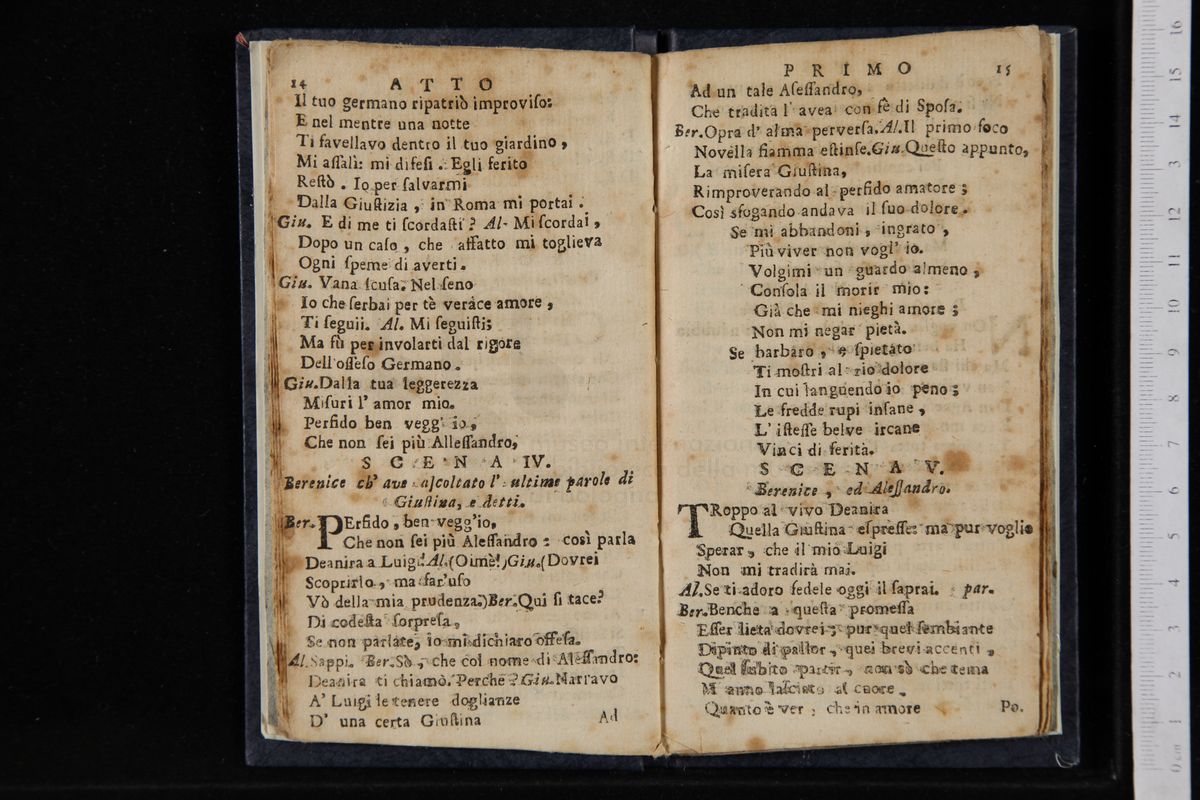 14 ATTO
Il tuo germano ripatriò improviso:
E nel mentre una notte
Ti favellavo dentro il tuo giardino,
Mi assalì: mi difesi. Egli ferito
Restò. Io per salvarmi
Dalla Giustizia, in Roma mi portai.
Giu. E di me ti scordasti? Al. Mi scordai,
Dopo un caso, che affatto mi toglieva
Ogni speme di averti.
Giu. Vana scusa. Nel seno
Io che serbai per tè verace amore,
Ti seguii. Al. Mi seguisti;
Ma fù per involarti dal rigore
Dell'offeso Germano.
Giu. Dalla tua leggerezza
Misuri l'amor mio.
Perfido ben vegg'io,
Che non sei più Allessandro,
SCENA IV.
Berenice ch'ave ascoltato l'ultime parole di
Giustina, e detti.
Ber. PErfido, ben vegg'io,
Che non sei più Alessandro: così parla
Deanira a Luigi! Al. (Oimè!) Giu. (Dovrei
Scoprirlo, ma far'uso
Vò della mia prudenza.) Ber. Qui si tace?
Di codesta sorpresa,
Se non parlate, io mi dichiaro offesa.
Al. Sappi. Ber. Sò, che col nome di Alessandro:
Deanira ti chiamò. Perche? Giu. Narravo
A' Luigi le tenere doglianze
D' una certa Giustina
Ad
PRIMO 15
Ad un tale Asessandro,
Che tradita l'avea con fè di Sposa.
Ber. Opra d'alma perversa. Al. Il primo foco
Novella fiamma estinse. Giu. Questo appunto,
La misera Giustina,
Rimproverando al perfido amatore;
Così sfogando andava il suo dolore.
Se mi abbandoni, ingrato,
Più viver non vogl'io.
Volgimi un guardo almeno,
Consola il morir mio:
Già che mi nieghi amore;
Non mi negar pietà.
Se barbaro, e spietato
Ti mostri al rio dolore
In cui languendo io peno;
Le fredde rupi insane,
L'istesse belve ircane
Vinci di ferità.
SCENA V.
Berenice, ed Alessandro.
TRoppo al vivo Deanira
Quella Giustina espresse: ma pur voglio
Sperar, che il mio Luigi
Non mi tradirà mai.
Al. Se ti adoro fedele oggi il saprai. par.
Ber. Benche a questa promessa
Esser lieta dovrei; pur quel sembiante
Dipinto di pallor, quei brevi accenti,
Quel subito partir, non sò che tema
M'anno lasciato al cuore.
Quanto è ver, che in amore
Po.
0 cm 1 2 3 4 5 6 7 8 9 10 11 12 13 14 15 16